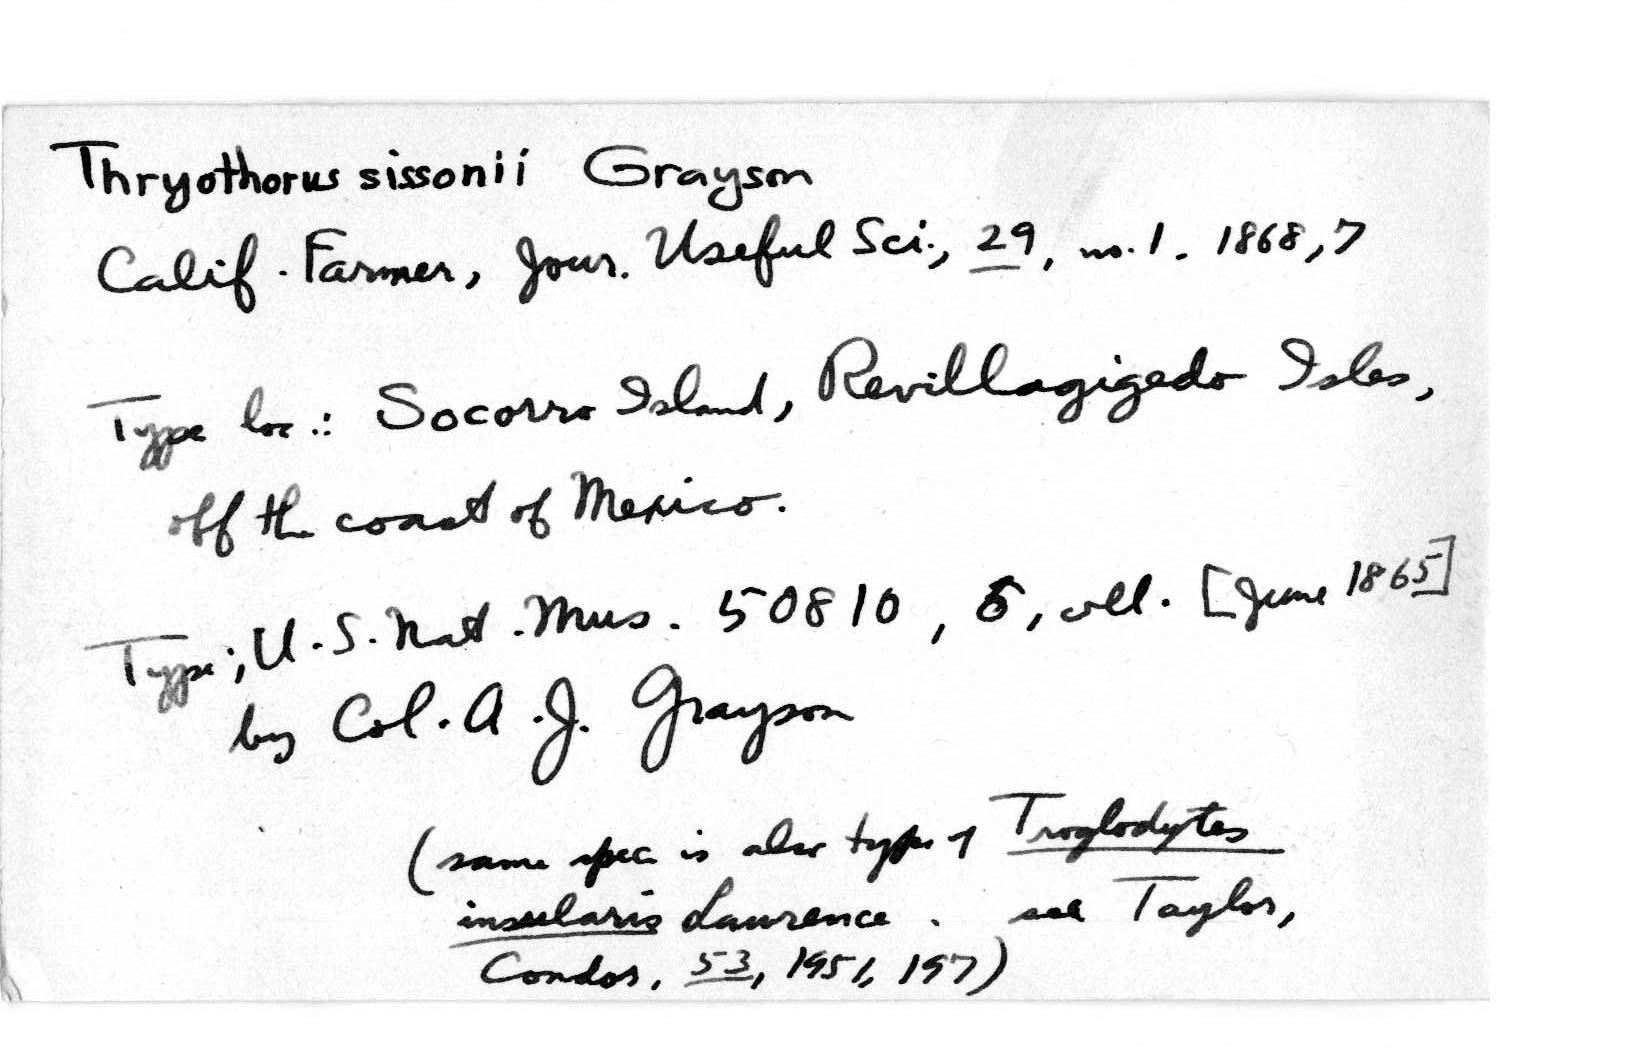 Thryothorus sissonii Grayson
Calif. Farmer, Jour. Useful Sci., 29, no. 1. 1868, 7
Type loc.: Socorro Island, Revillagigedo Isles,
off the coast of Mexico.
Type; U.S. Nat. Mus. 50810, coll. [June 1865]
by Col. A.J. Grayson
(same spec is also type of Troglodytes
insularis Lawrence. see Taylor,
Condor, 53, 1951, 197)